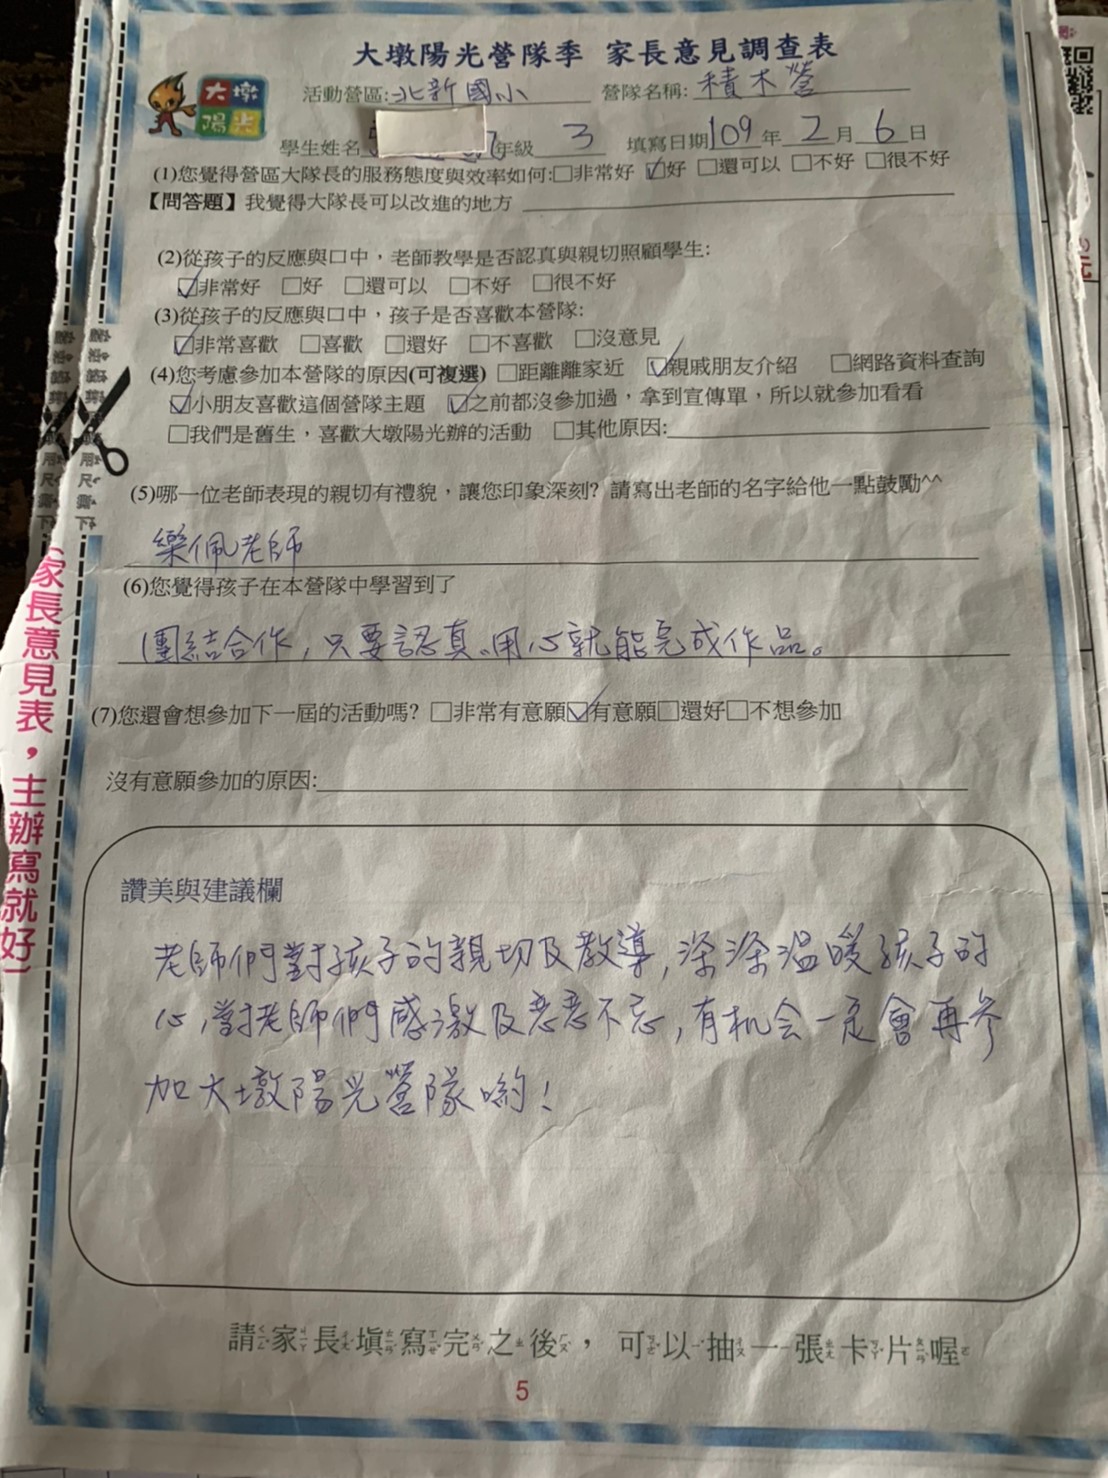 大墩陽光營隊季 家長意見調查表
大墩
陽光
活動營區:北新國小 營隊名稱:積木營
學生姓名 年級 3 填寫日期109年2月6日
(1)您覺得營區大隊長的服務態度與效率如何:□非常好 ☑好 □還可以 □不好 □很不好
【問答題】我覺得大隊長可以改進的地方
(2)從孩子的反應與口中，老師教學是否認真與親切照顧學生:
☑非常好 □好 □還可以 □不好 □很不好
(3)從孩子的反應與口中，孩子是否喜歡本營隊:
☑非常喜歡 □喜歡 □還好 □不喜歡 □沒意見
(4)您考慮參加本營隊的原因(可複選) □距離離家近 ☑親戚朋友介紹 □網路資料查詢
☑小朋友喜歡這個營隊主題 ☑之前都沒參加過，拿到宣傳單，所以就參加看看
□我們是舊生，喜歡大墩陽光辦的活動 □其他原因:
(5)哪一位老師表現的親切有禮貌，讓您印象深刻? 請寫出老師的名字給他一點鼓勵^^
樂佩老師
(6)您覺得孩子在本營隊中學習到了
團結合作，只要認真、用心就能完成作品。
(7)您還會想參加下一屆的活動嗎? □非常有意願☑有意願□還好□不想參加
沒有意願參加的原因:
讚美與建議欄
老師們對孩子的親切及教導，深深温暖孩子的
心，對老師們感激及念念不忘，有机会一定會再參
加大墩陽光營隊喲！
請家長填寫完之後，可以抽一張卡片喔
5
家長意見表，主辦寫就好)
元